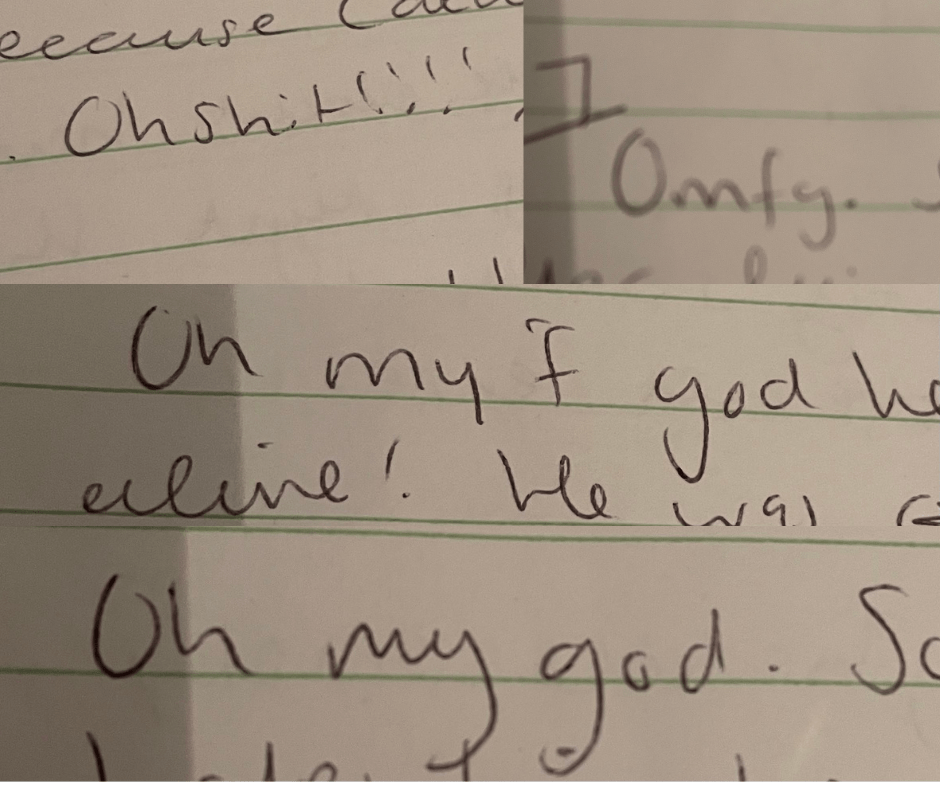 because
. Oh shit!!!!
Omfg.
Oh my f god he
alive! He was
Oh my god. So